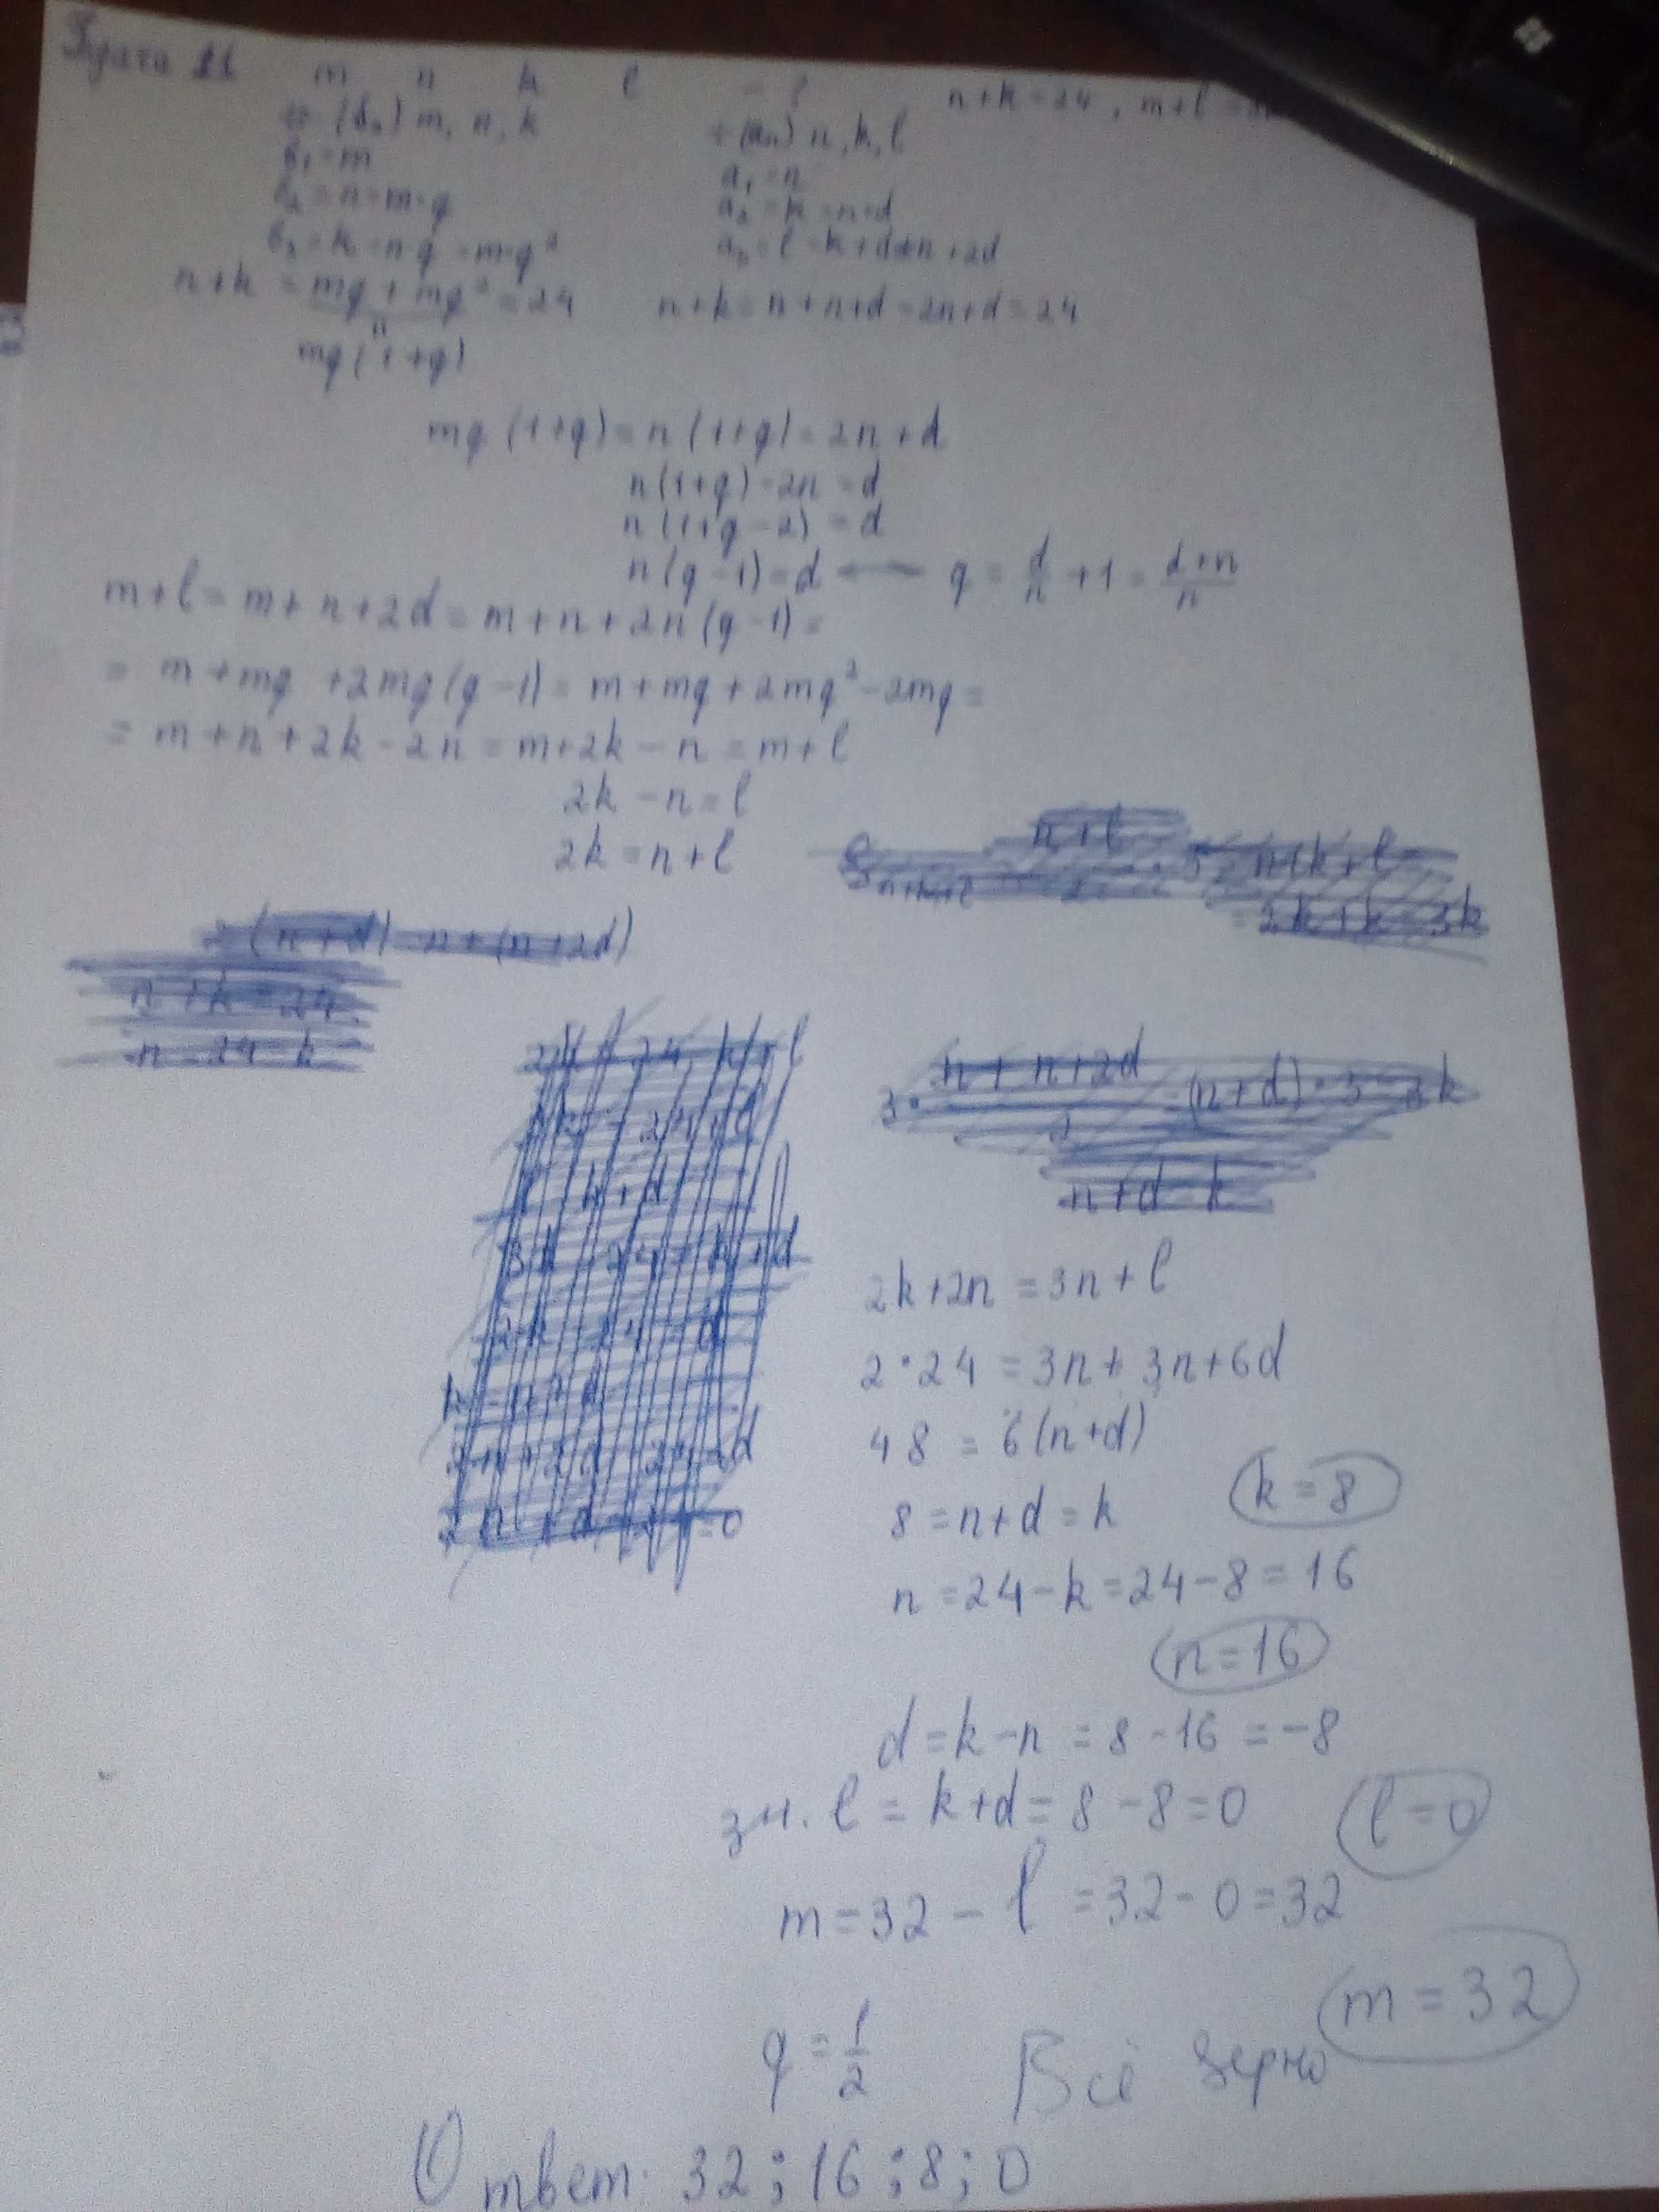 m n k l - ? n+k=24, m+l=
(bₙ) m, n, k +(aₙ) n, k, l
b₁=m a₁=n
b₂=n=m·q a₂=k=n+d
b₃=k=n·q=m·q² a₃=l=k+d=n+2d
n+k=mq+mq²=24 n+k=n+n+d=2n+d=24
mq(1+q)
mq(1+q)=n(1+q)=2n+d
n(1+q)-2n=d
n(1+q-2)=d
n(q-1)=d ← q=d/n+1=(d+n)/n
m+l=m+n+2d=m+n+2n(q-1)=
=m+mq+2mq(q-1)=m+mq+2mq²-2mq=
=m+n+2k-2n=m+2k-n=m+l
2k-n=l
2k=n+l
2k+2n=3n+l
2·24=3n+3n+6d
48=6(n+d)
8=n+d=k k=8
n=24-k=24-8=16
n=16
d=k-n=8-16=-8
зн. l=k+d=8-8=0 l=0
m=32-l=32-0=32
m=32
q=1/2 Всё верно
Ответ: 32; 16; 8; 0